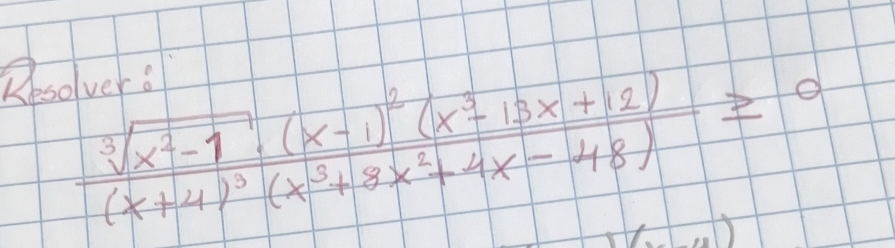 Resolver:
∛(x²-1) · (x-1)² (x³-13x+12) ≥ 0
(x+4)³ (x³+8x²+4x-48)